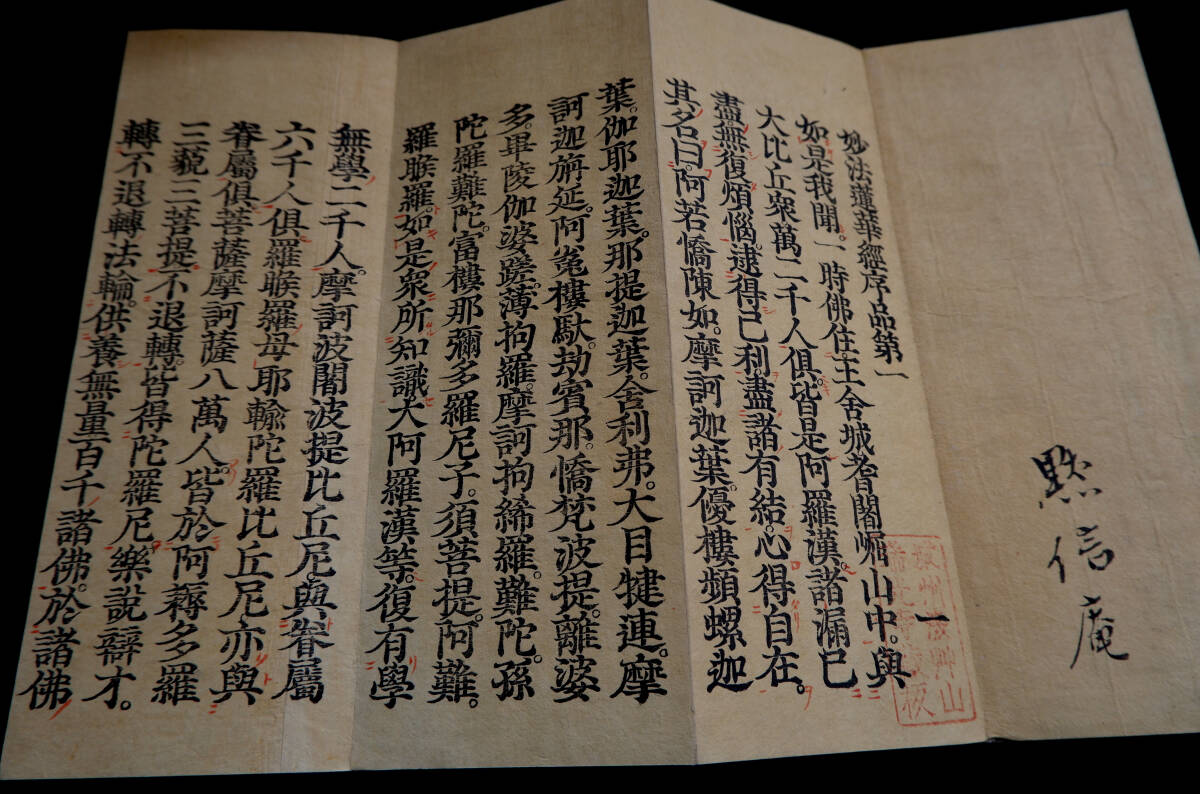 黙信庵
妙法蓮華經序品第一
如是我聞。一時佛住王舍城耆闍崛山中。與
大比丘衆萬二千人俱。皆是阿羅漢。諸漏已
盡。無復煩惱。逮得己利。盡諸有結。心得自在。
其名曰。阿若憍陳如。摩訶迦葉。優樓頻螺迦
葉。伽耶迦葉。那提迦葉。舍利弗。大目犍連。摩
訶迦旃延。阿㝹樓馱。劫賓那。憍梵波提。離婆
多。畢陵伽婆蹉。薄拘羅。摩訶拘絺羅。難陀。孫
陀羅難陀。富樓那彌多羅尼子。須菩提。阿難。
羅睺羅。如是衆所知識。大阿羅漢等。復有學
無學二千人。摩訶波闍波提比丘尼。與眷屬
六千人俱。羅睺羅母耶輸陀羅比丘尼。亦與
眷屬俱。菩薩摩訶薩八萬人。皆於阿耨多羅
三藐三菩提。不退轉。皆得陀羅尼。樂說辯才。
轉不退轉法輪。供養無量百千諸佛。於諸佛
一